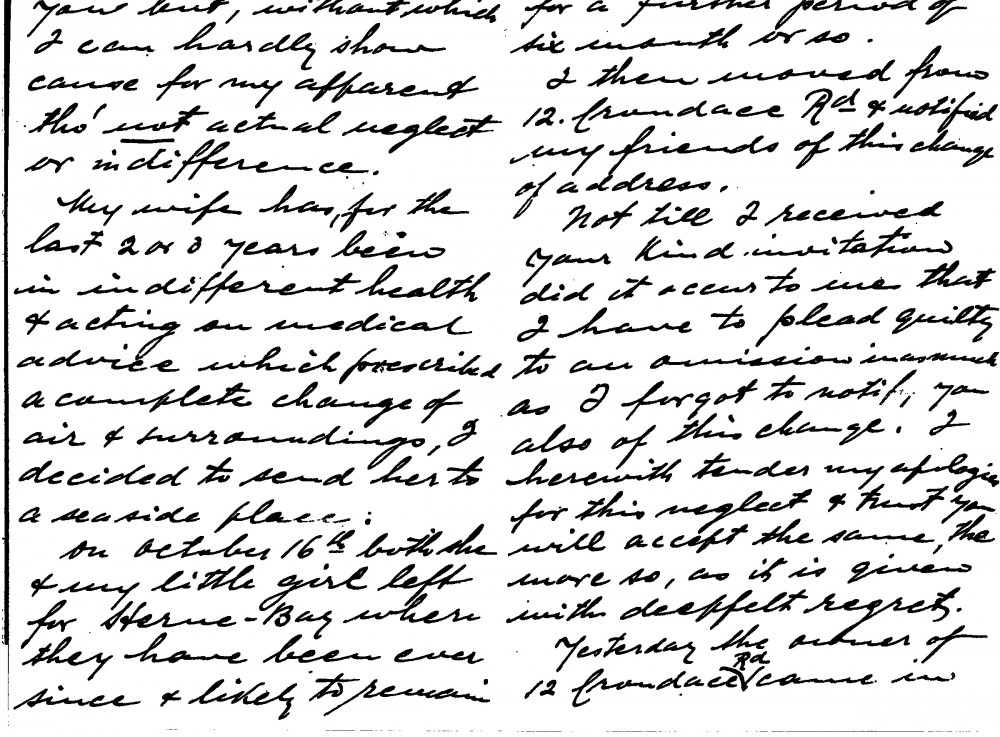 you but, without which
I can hardly show
cause for my apparent
tho' not actual neglect
or indifference.
My wife has, for the
last 2 or 3 years been
in indifferent health
& acting on medical
advice which prescribed
a complete change of
air & surroundings, I
decided to send her to
a seaside place:
On October 16th both she
& my little girl left
for Herne-Bay where
they have been ever
since & likely to remain
for a further period of
six month or so.
I then moved from
12. Crondace Rd & notified
my friends of this change
of address.
Not till I received
your kind invitation
did it occur to me that
I have to plead guilty
to an omission inasmuch
as I forgot to notify you
also of this change. I
herewith tender my apologies
for this neglect & trust you
will accept the same, the
more so, as it is given
with deepfelt regret.
Yesterday the owner of
12 Crondace Rd came in